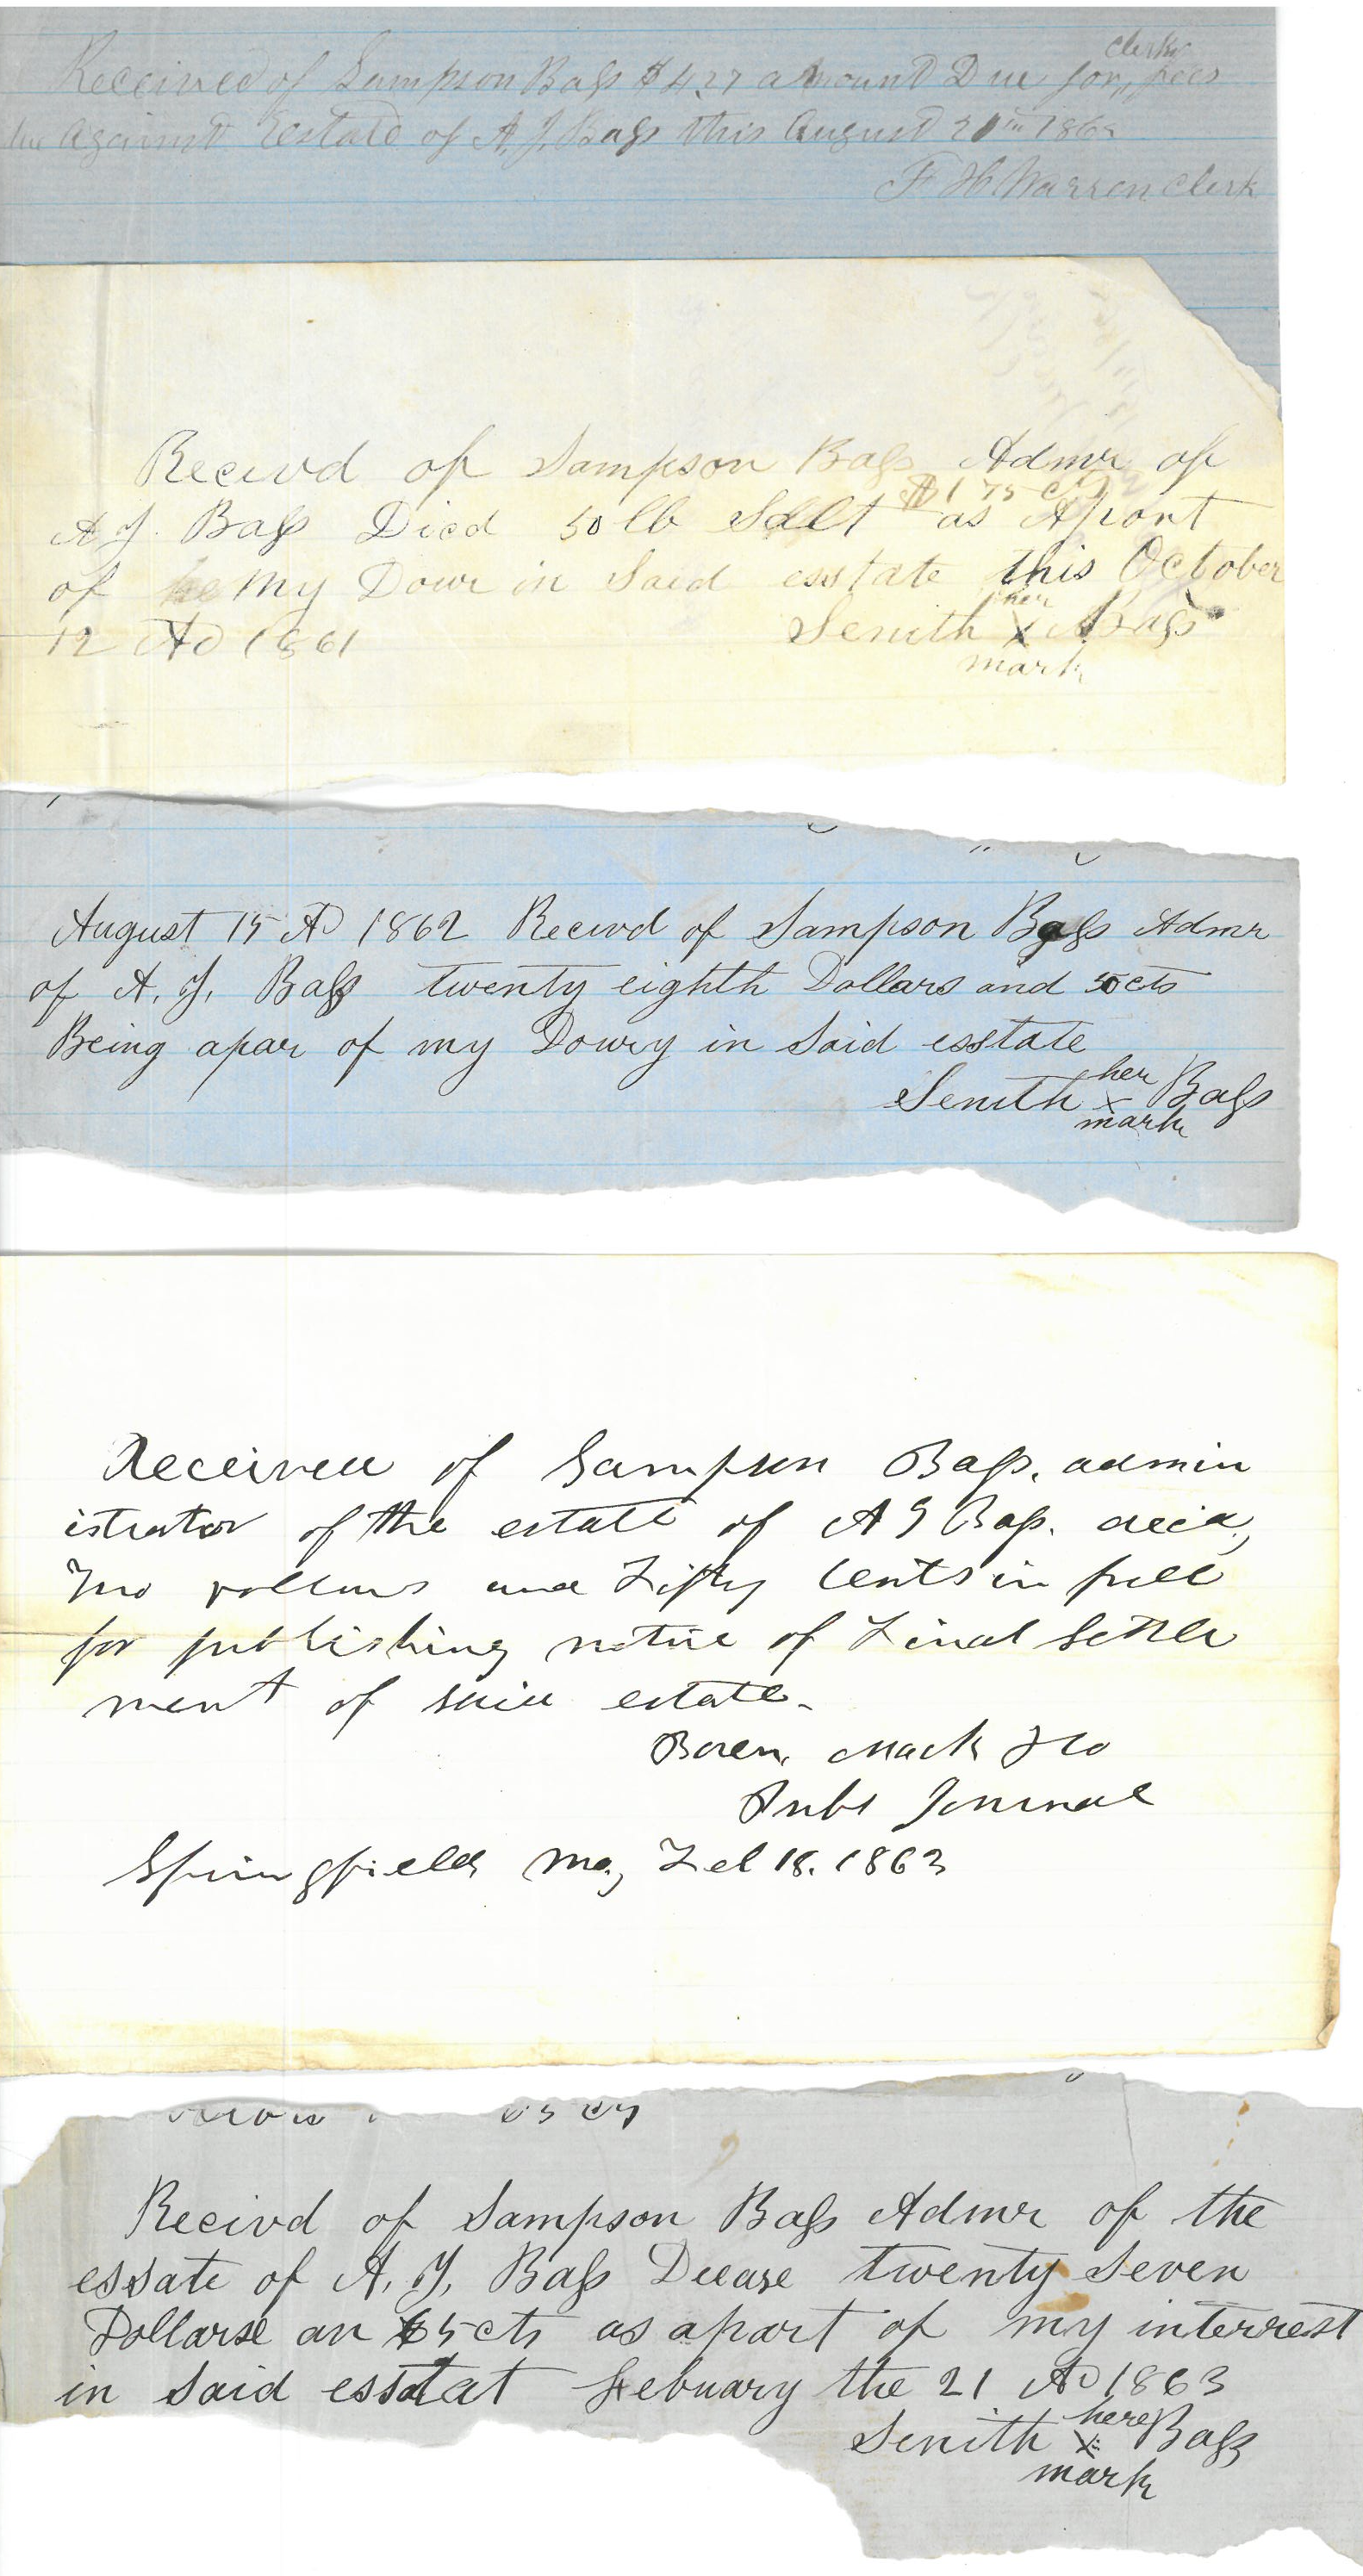 clerks
Received of Sampson Bass $4.27 amount Due for,, fees
due against Estate of A. J. Bass this August 20th 1862
F H Warren Clerk
Recivd of Sampson Bass Admr of
$1 75 cts
A J. Bass Died 50 lb Salt as Apart
of my Dowr in Said esstate this October
12 AD 1861 Senith her x Bass
mark
August 15 AD 1862 Recivd of Sampson Bass Admr
of A. J. Bass twenty eighth Dollars and 50 cts
Being apar of my Dowry in Said esstate
her
Senith x Bass
mark
Received of Sampson Bass, admin
istrator of the estate of A J Bass. decd,
Two dollars and Fifty Cents in full
for publishing notice of Final Settle
ment of said estate.
Boren, Mack & Co
Pubs Journal
Springfield Mo, Feb 18. 1863
Recivd of Sampson Bass Admr of the
essate of A. J. Bass Decase twenty Seven
Dollarse an 65 cts as apart of my interrest
in Said esstat Febuary the 21 AD 1863
here
Senith x Bass
mark